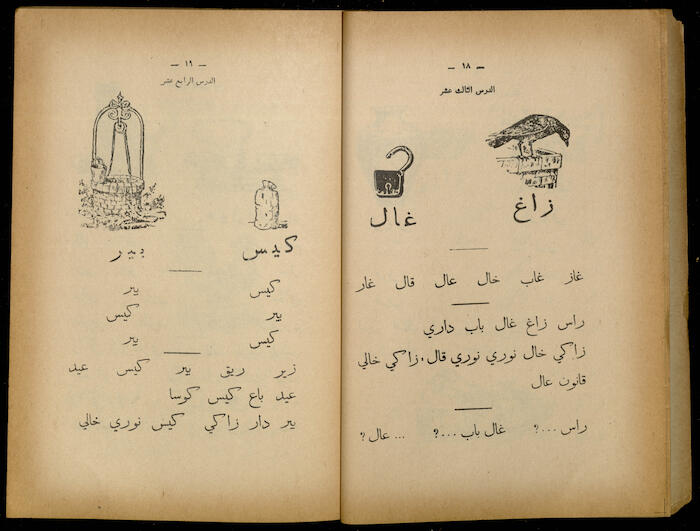 — ١٨ —
الدرس الثالث عشر
زاغ
غال
غاز غاب خال عال قال غار
راس زاغ غال باب داري
زاكي خال نوري نوري قال، زاكي خالي
قانون عال
راس ...؟ غال باب ...؟ ... عال ؟
— ١٩ —
الدرس الرابع عشر
كيس بير
كيس بير
بير كيس
كيس بير
زير ريق بير كيس عيد
عيد باع كيس كوسا
بير دار زاكي كيس نوري خالي